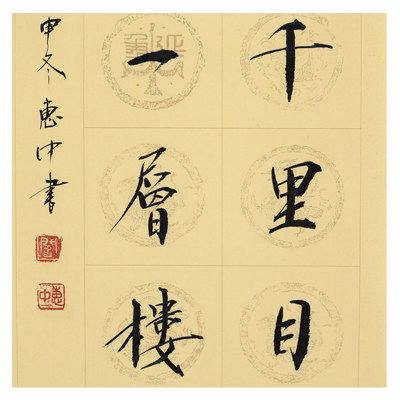 千里目
一層樓
申冬惠中書
惠中